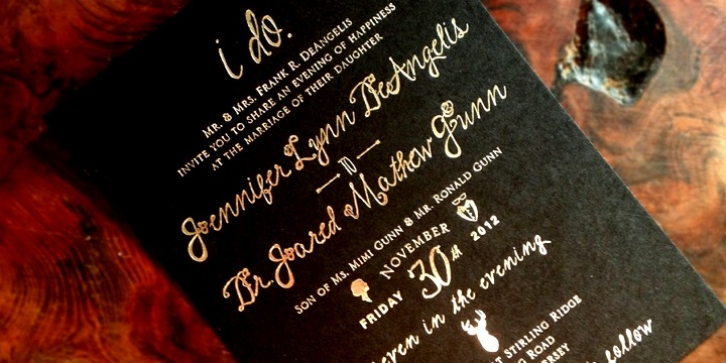 i do.
MR. & MRS. FRANK R. DEANGELIS
INVITE YOU TO SHARE AN EVENING OF HAPPINESS
AT THE MARRIAGE OF THEIR DAUGHTER
Jennifer Lynn DeAngelis
TO
Dr. Jared Mathew Gunn
SON OF MS. MIMI GUNN & MR. RONALD GUNN
NOVEMBER
FRIDAY 30th 2012
in the evening
STIRLING RIDGE
ROAD
follow